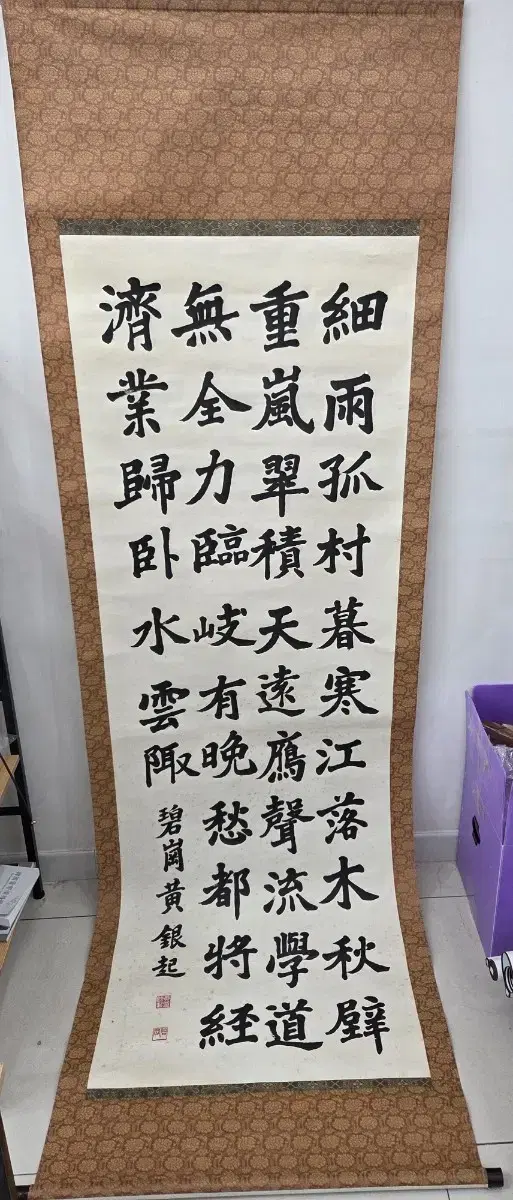 細雨孤村暮寒江落木秋壁
重嵐翠積天遠鴈聲流學道
無全力臨岐有晩愁都將経
濟業歸卧水雲陬
碧崗黃銀起